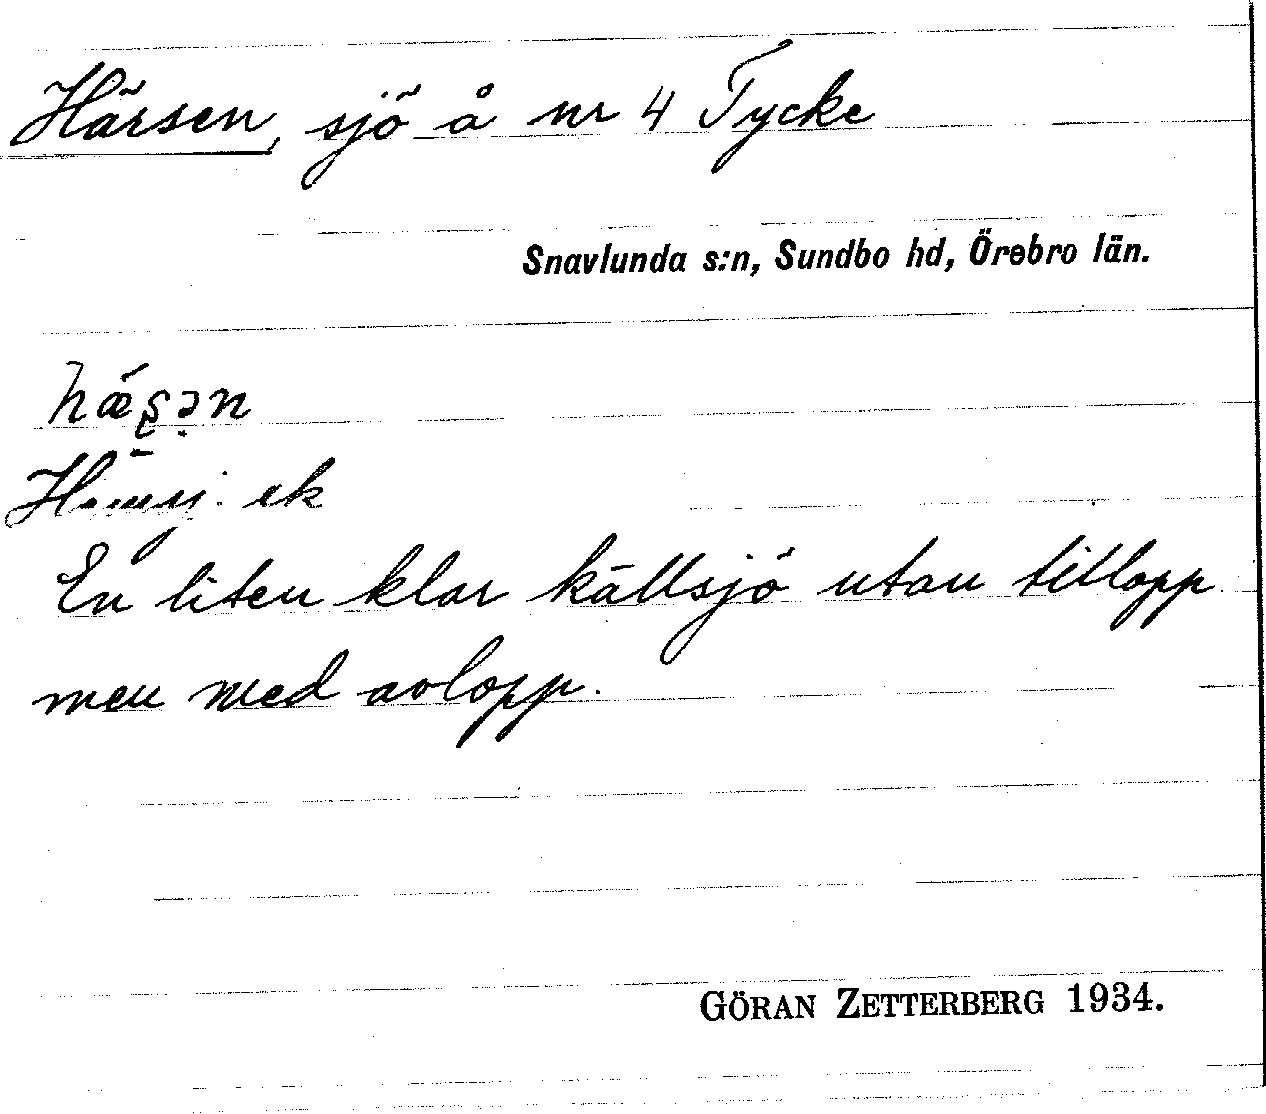 Härsen, sjö å nr 4 Tycke
Snavlunda s:n, Sundbo hd, Örebro län.
ek
En liten klar källsjö utan tillopp
men med avlopp.
GÖRAN ZETTERBERG 1934.